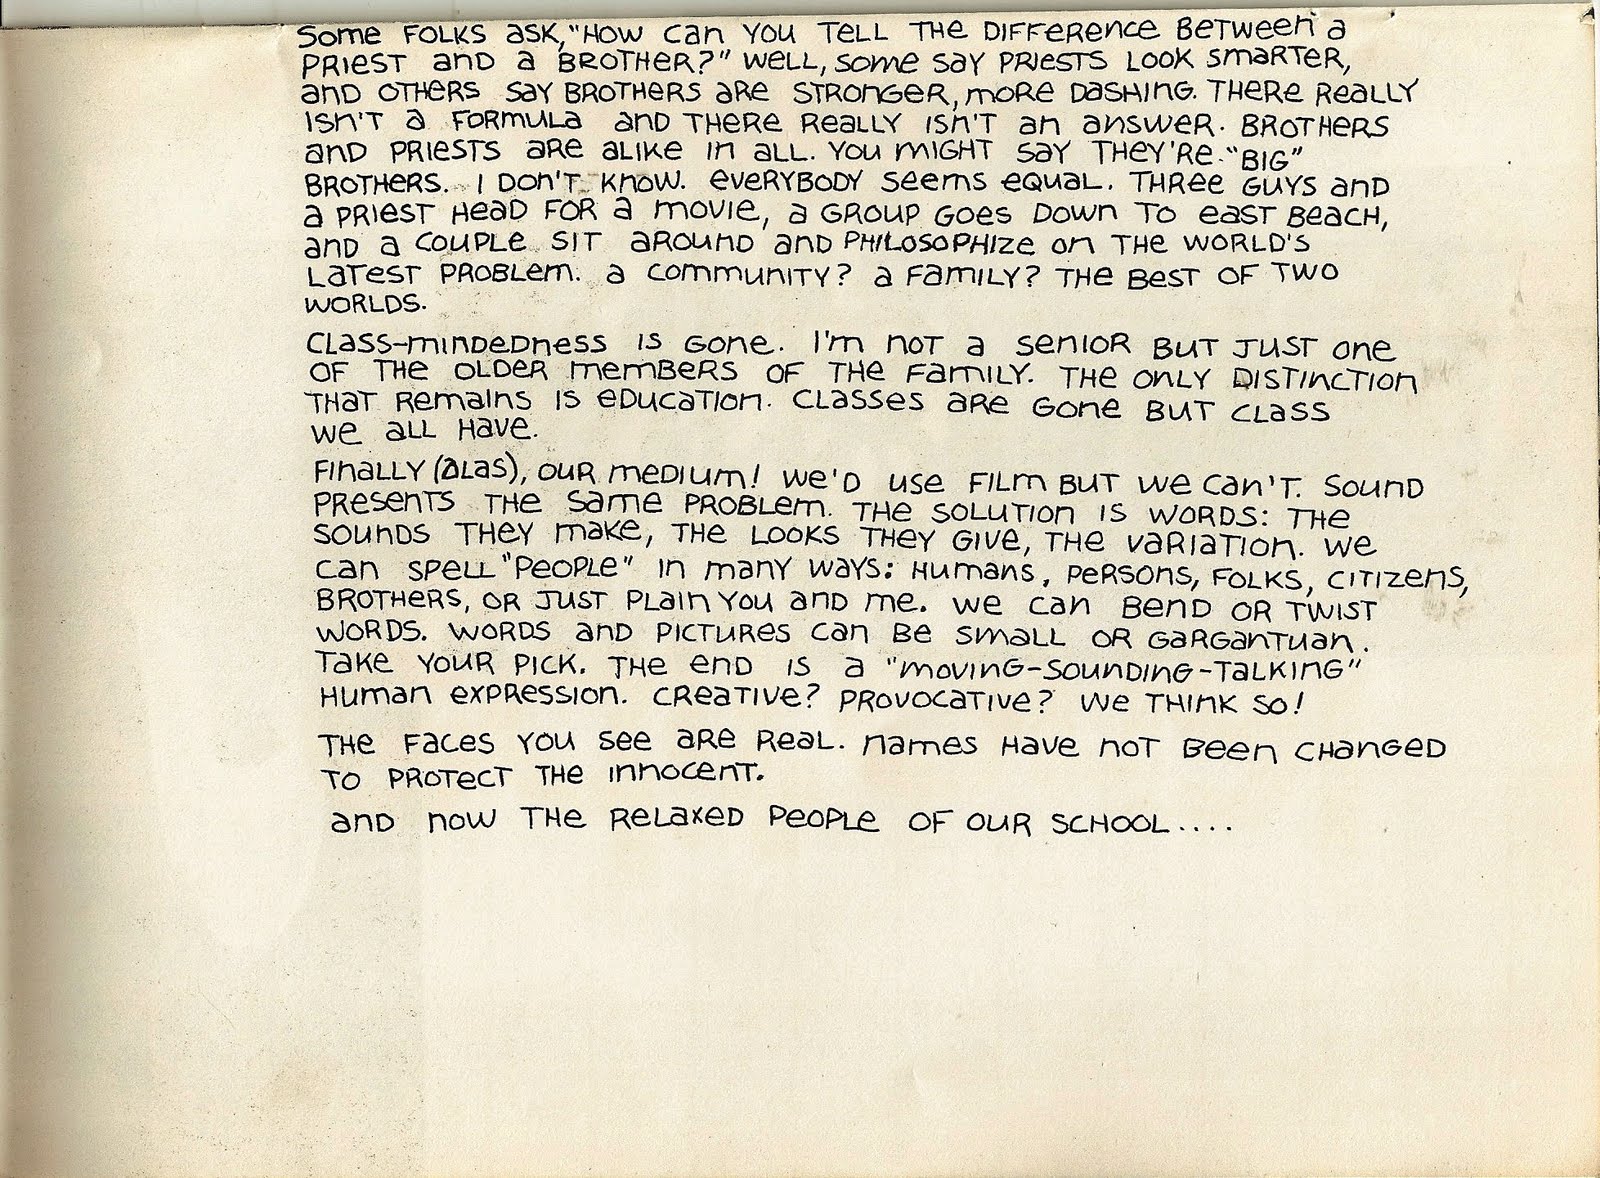 Some folks ask, "How can you tell the difference between a
priest and a brother?" Well, some say priests look smarter,
and others say brothers are stronger, more dashing. There really
isn't a formula and there really isn't an answer. Brothers
and priests are alike in all. You might say they're "big"
brothers. I don't know. Everybody seems equal. Three guys and
a priest head for a movie, a group goes down to East Beach,
and a couple sit around and philosophize on the world's
latest problem. A community? A family? The best of two
worlds.
Class-mindedness is gone. I'm not a senior but just one
of the older members of the family. The only distinction
that remains is education. Classes are gone but class
we all have.
Finally (alas), our medium! We'd use film but we can't. Sound
presents the same problem. The solution is words: the
sounds they make, the looks they give, the variation. We
can spell "people" in many ways: humans, persons, folks, citizens,
brothers, or just plain you and me. We can bend or twist
words. Words and pictures can be small or gargantuan.
Take your pick. The end is a "moving-sounding-talking"
human expression. Creative? Provocative? We think so!
The faces you see are real. Names have not been changed
to protect the innocent.
And now the relaxed people of our school....